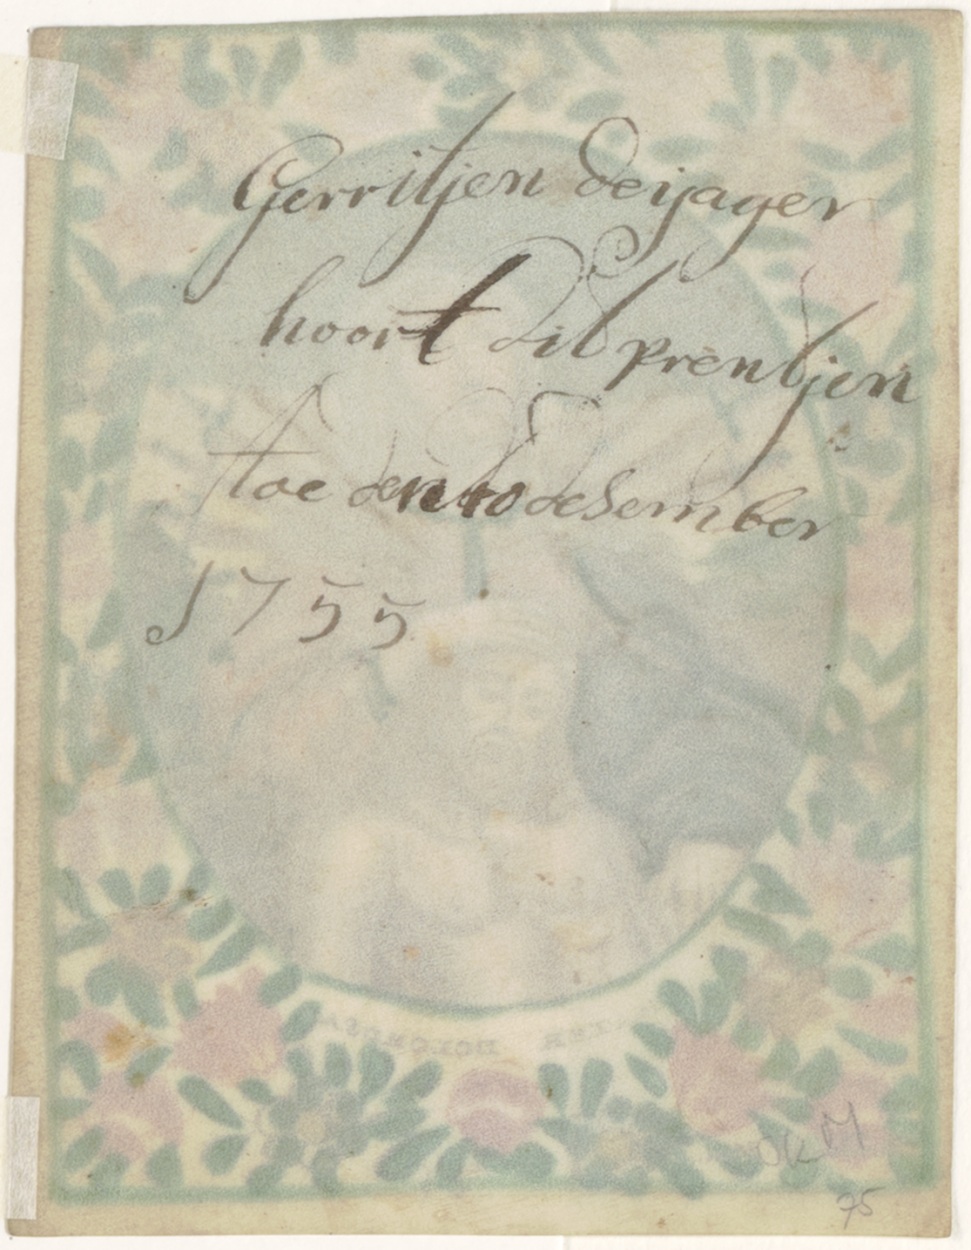 Gerritjen deijager
hoort dit prentjen
toe den 10 desember
1755
MATER DOLOROSA
OKM
75